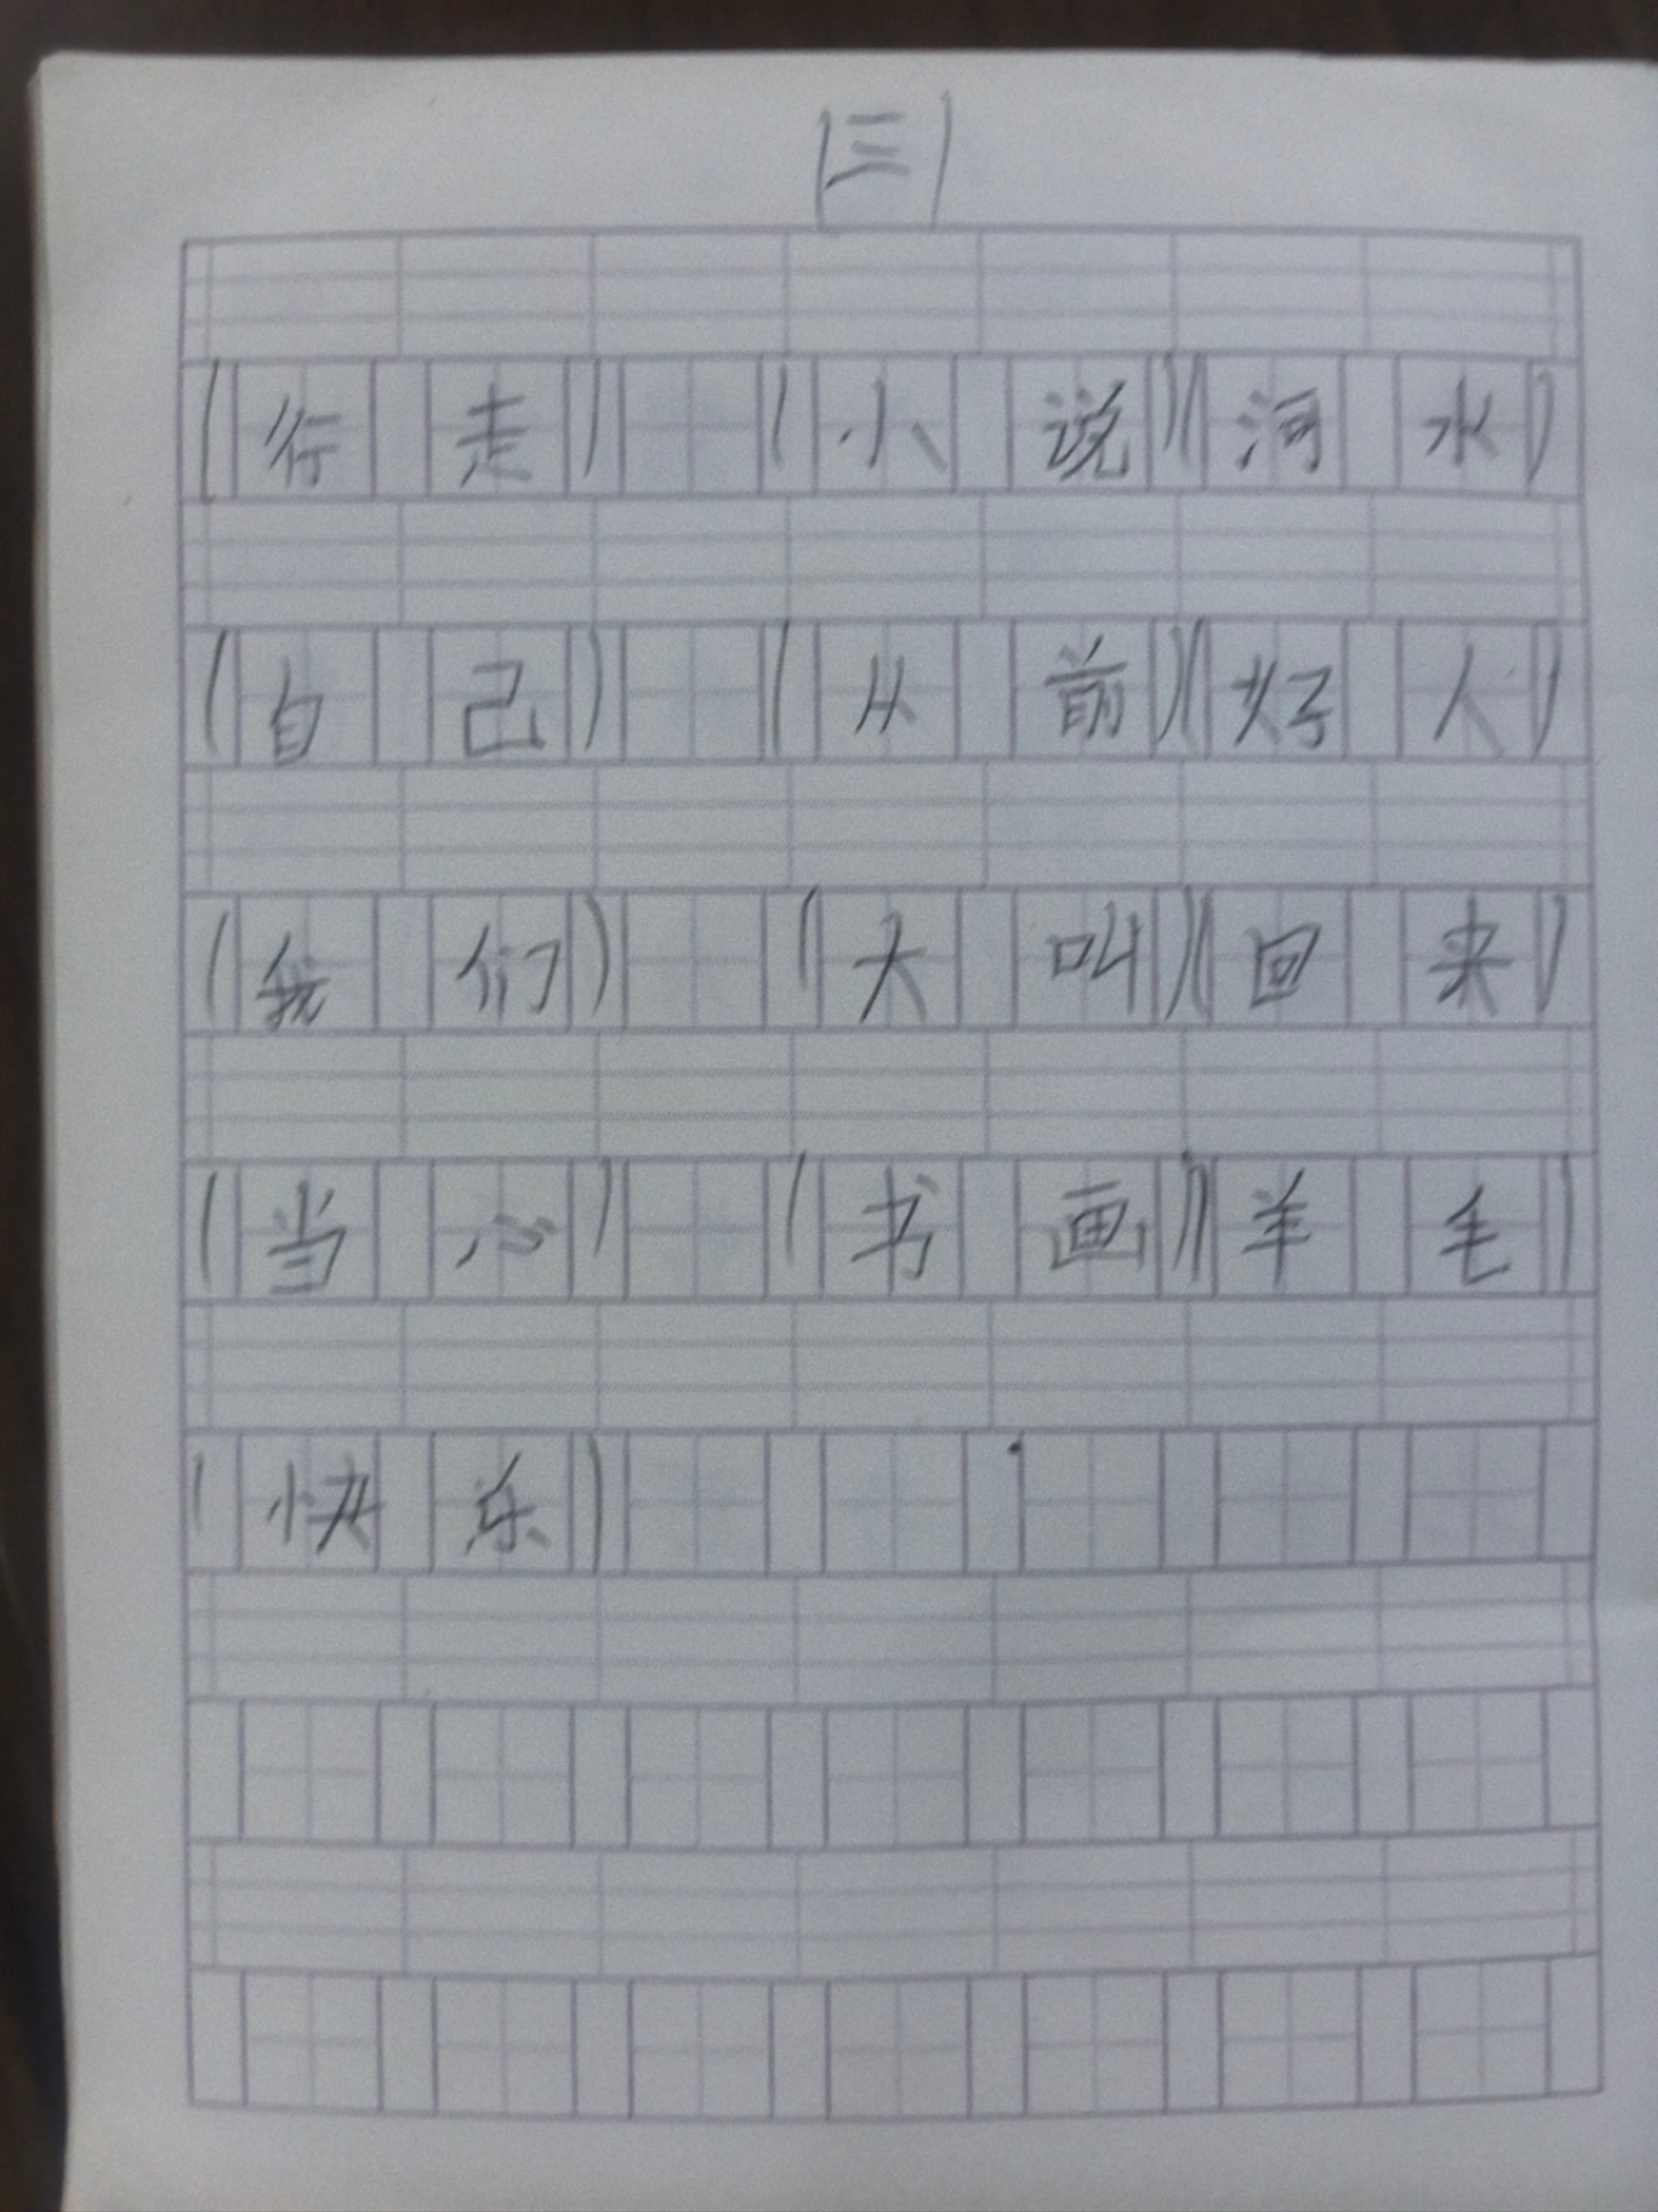 (三)
(行走) (小说)(河水)
(自己) (从前)(好人)
(我们) (大叫)(回来)
(当心) (书画)(羊毛)
(快乐)